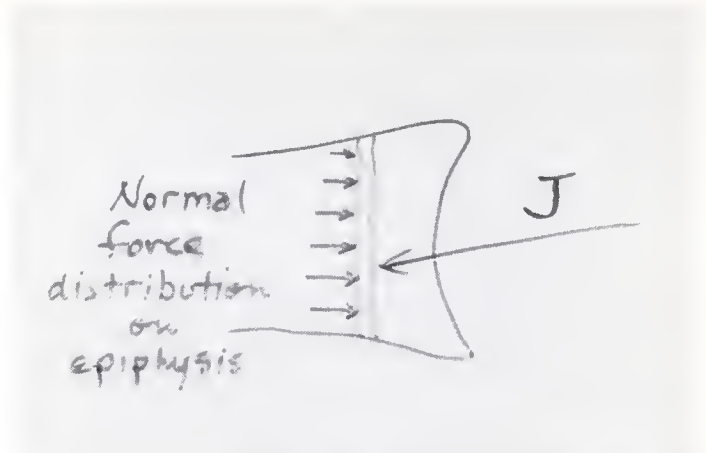 Normal
force
distribution
on
epiphysis
J